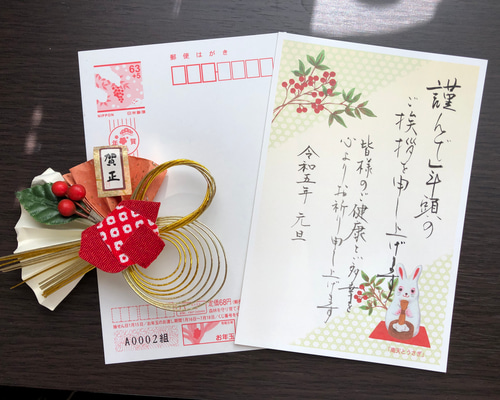 郵便はがき
63
+5
NIPPON
日本郵便
年賀
賀正
定価68円
A0002組
お年玉
謹んで年頭の
ご挨拶を申し上げます
皆様のご健康とご多幸を
心よりお祈り申し上げます
令和五年 元旦
「南天とうさぎ」